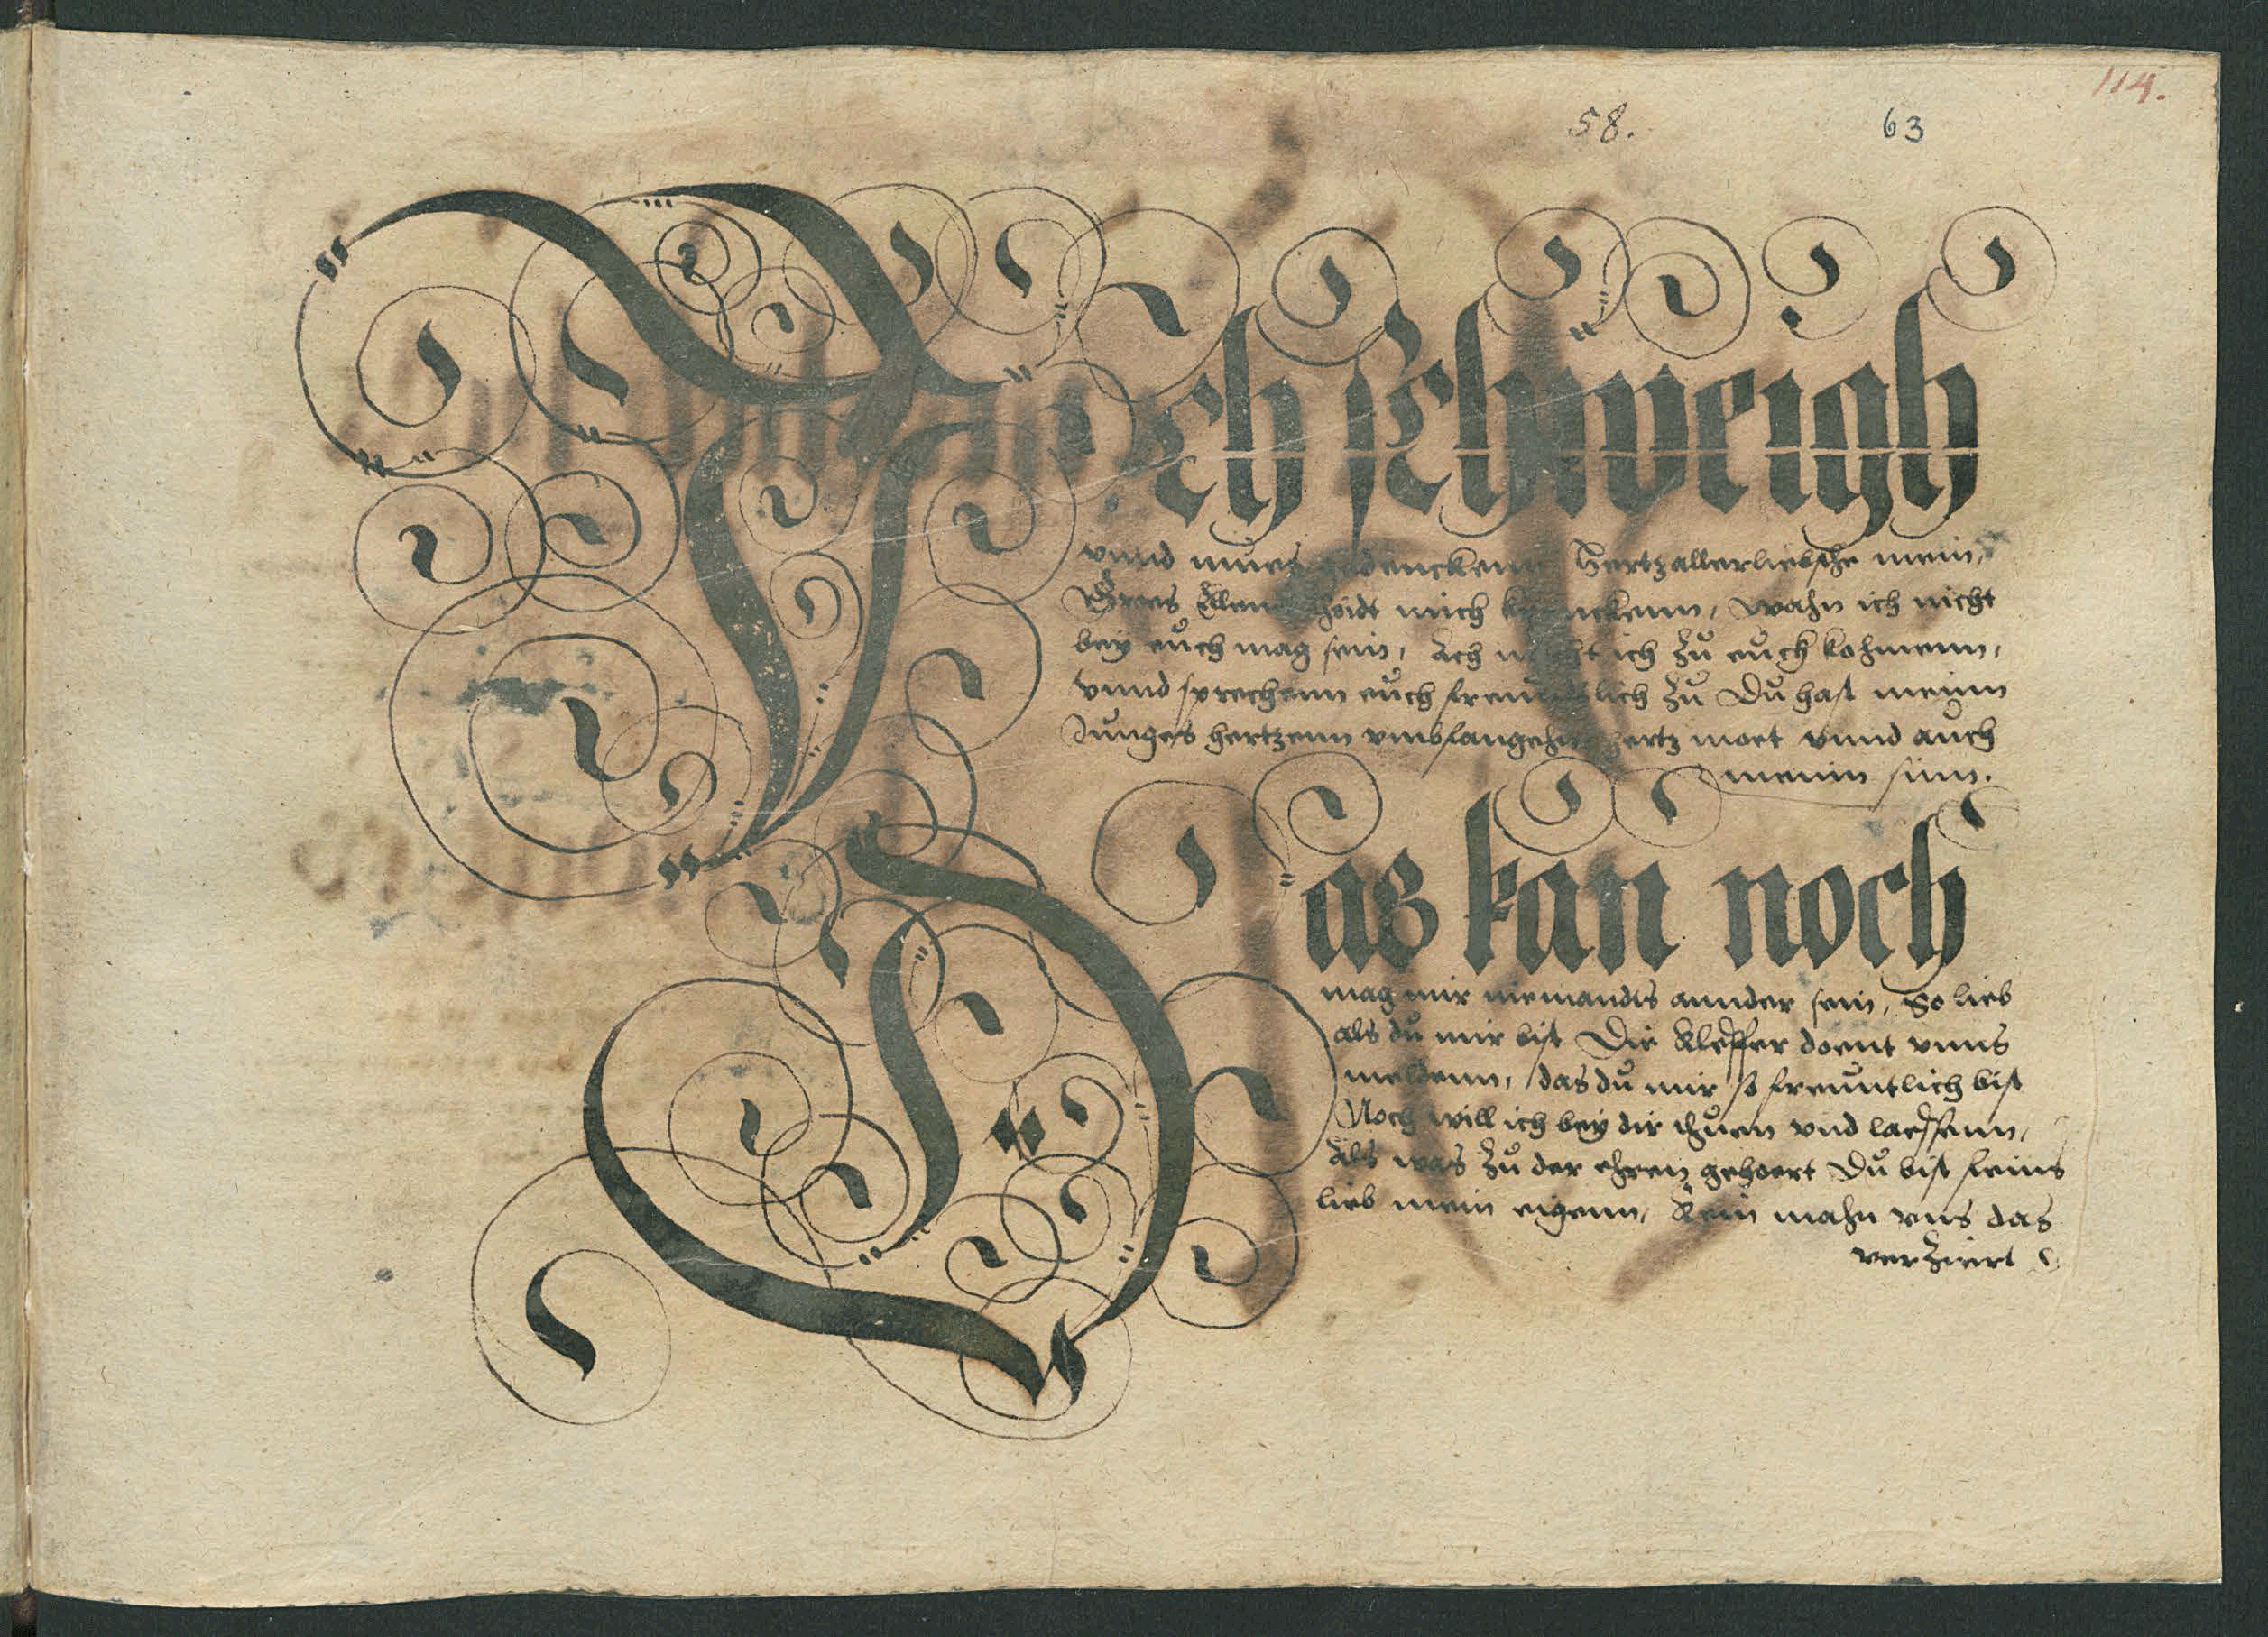 114.
58. 63
Ich schweigh
vnnd mues gedenckenn Hertzallerliebsthe mein,
Gros Ellendt thoidt mich krenckenn, wahn ich nicht
bey euch mag sein, Ach mocht ich zu euch kohmenn,
vnnd sprechenn euch freundtlich zu Du hast meinn
Junges hertzenn vmbfangehn hertz moet vnnd auch
meinn sinn.
Das kan noch
mag mir niemandts annder sein, So lieb
als du mir bist Die Kleffer doent vnns
meldenn, das du mir so freuntlich bist
Noch will ich bey dir thuen vnd laessenn,
Als was zu der ehren gehoert Du bist feins
lieb mein eigenn, Kein mahn vns das